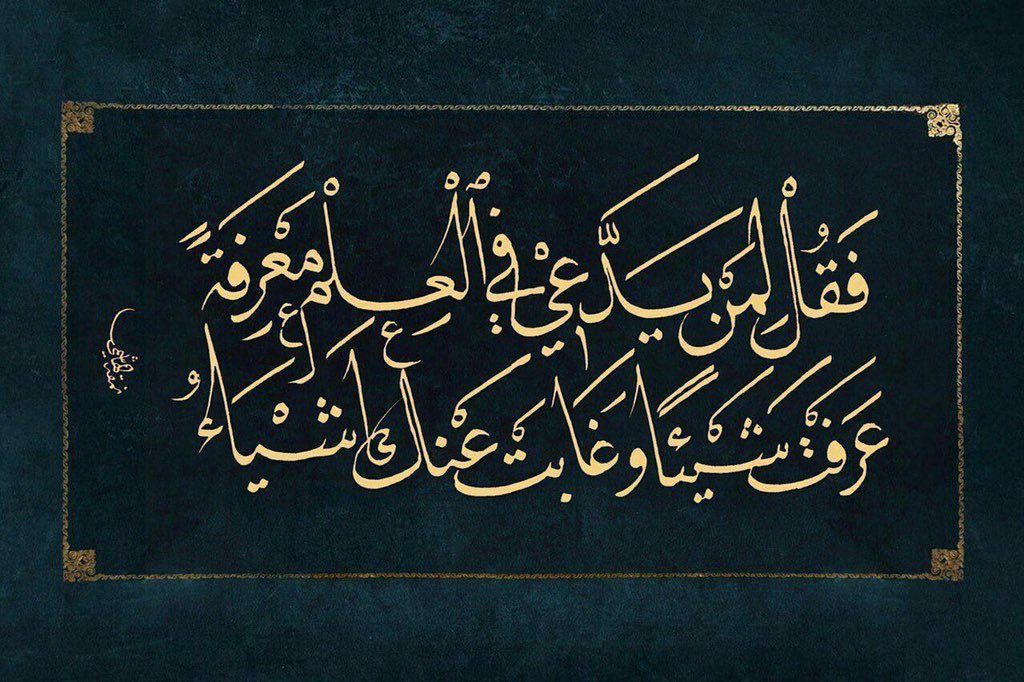 فَقُلْ لِمَنْ يَدَّعِيْ فِي ٱلْعِلْمِ مَعْرِفَةً
عَرَفْتَ شَيْئًا وَغَابَتْ عَنْكَ أَشْيَاءُ